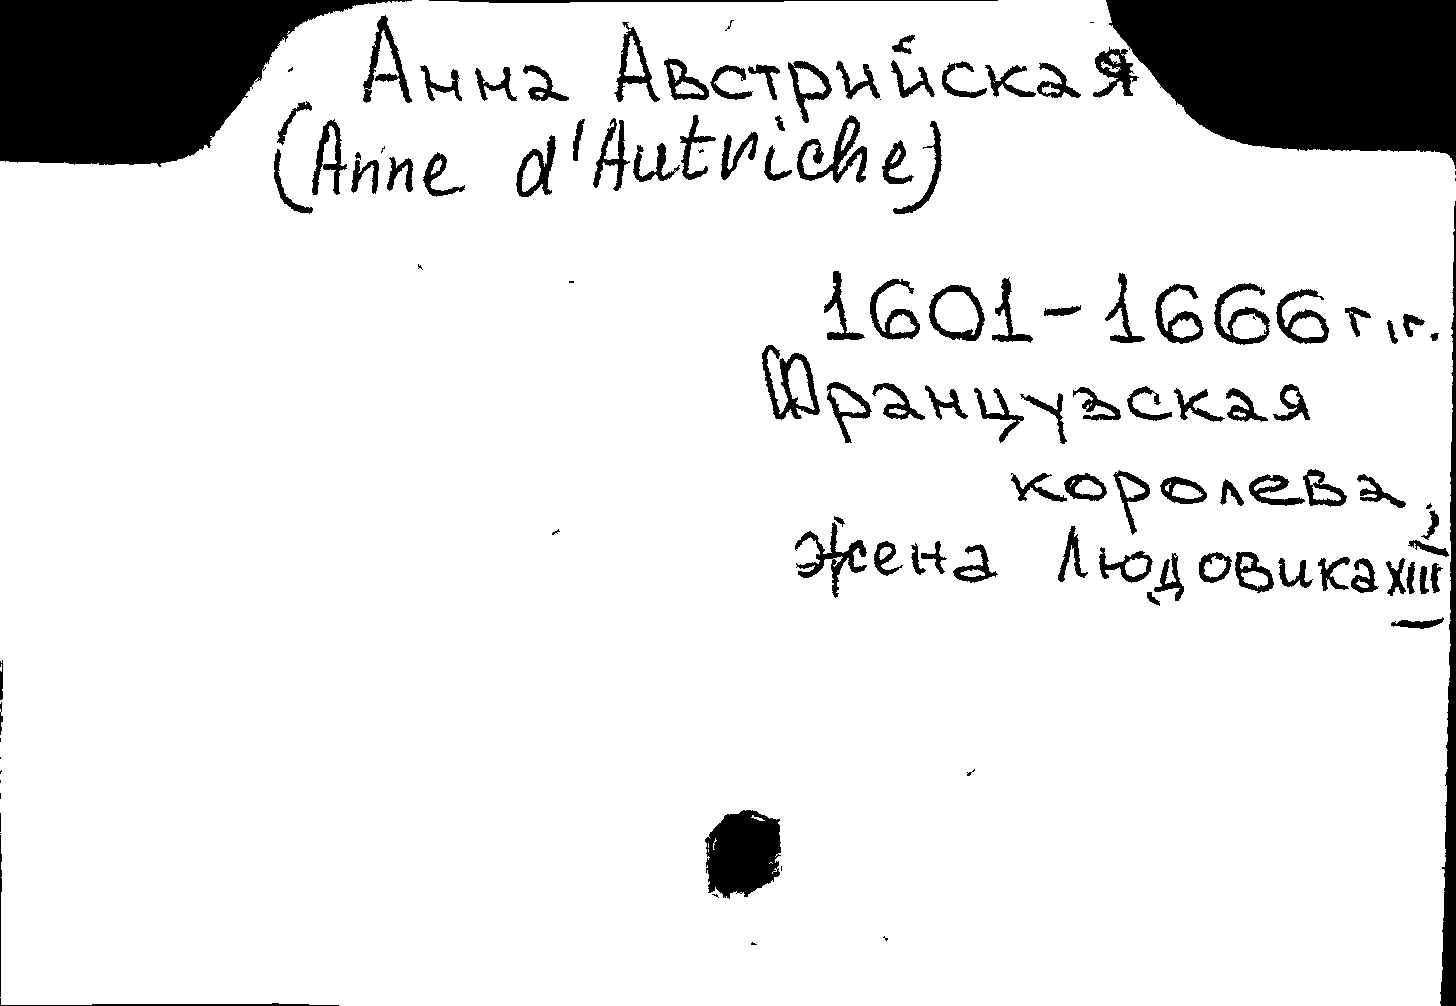 Анна Австрийская
(Anne d'Autriche)
1601-1666 г.г.
Французская
королева,
жена Людовика XIII